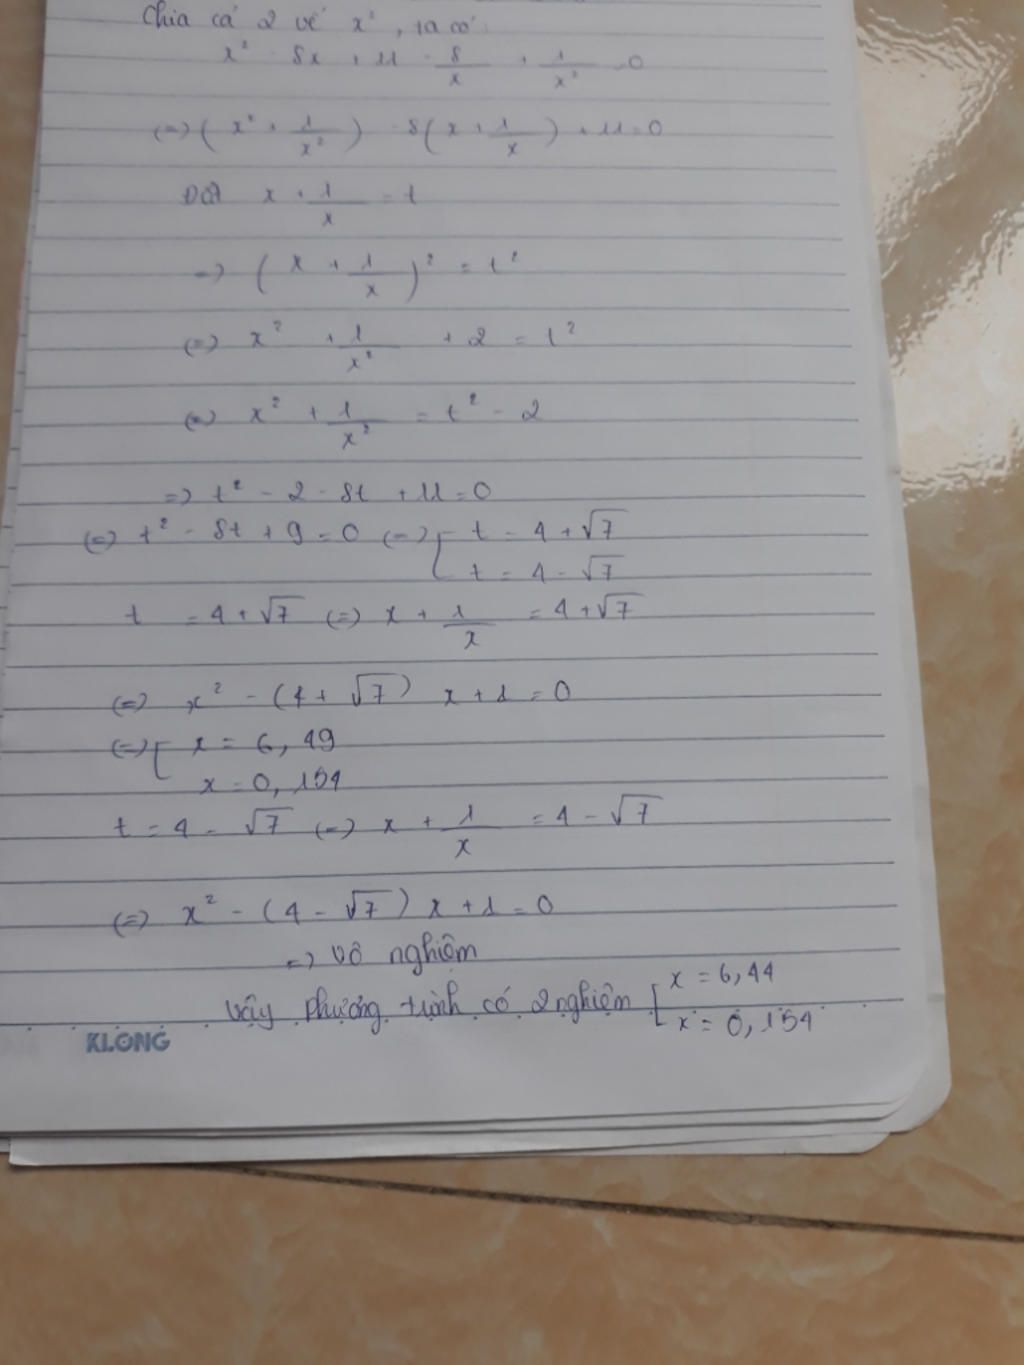 Chia cả 2 vế x², ta có:
x² - 8x + 11 - 8/x + 1/x² = 0
(=) (x² + 1/x²) - 8(x + 1/x) + 11 = 0
Đặt x + 1/x = t
=) (x + 1/x)² = t²
(=) x² + 1/x² + 2 = t²
(=) x² + 1/x² = t² - 2
=) t² - 2 - 8t + 11 = 0
(=) t² - 8t + 9 = 0 (=) [ t = 4 + √7
t = 4 - √7
t = 4 + √7 (=) x + 1/x = 4 + √7
(=) x² - (4 + √7) x + 1 = 0
(=) [ x = 6,49
x = 0,154
t = 4 - √7 (=) x + 1/x = 4 - √7
(=) x² - (4 - √7) x + 1 = 0
=) vô nghiệm
Vậy phương trình có 2 nghiệm [ x = 6,44
x = 0,154
KLONG